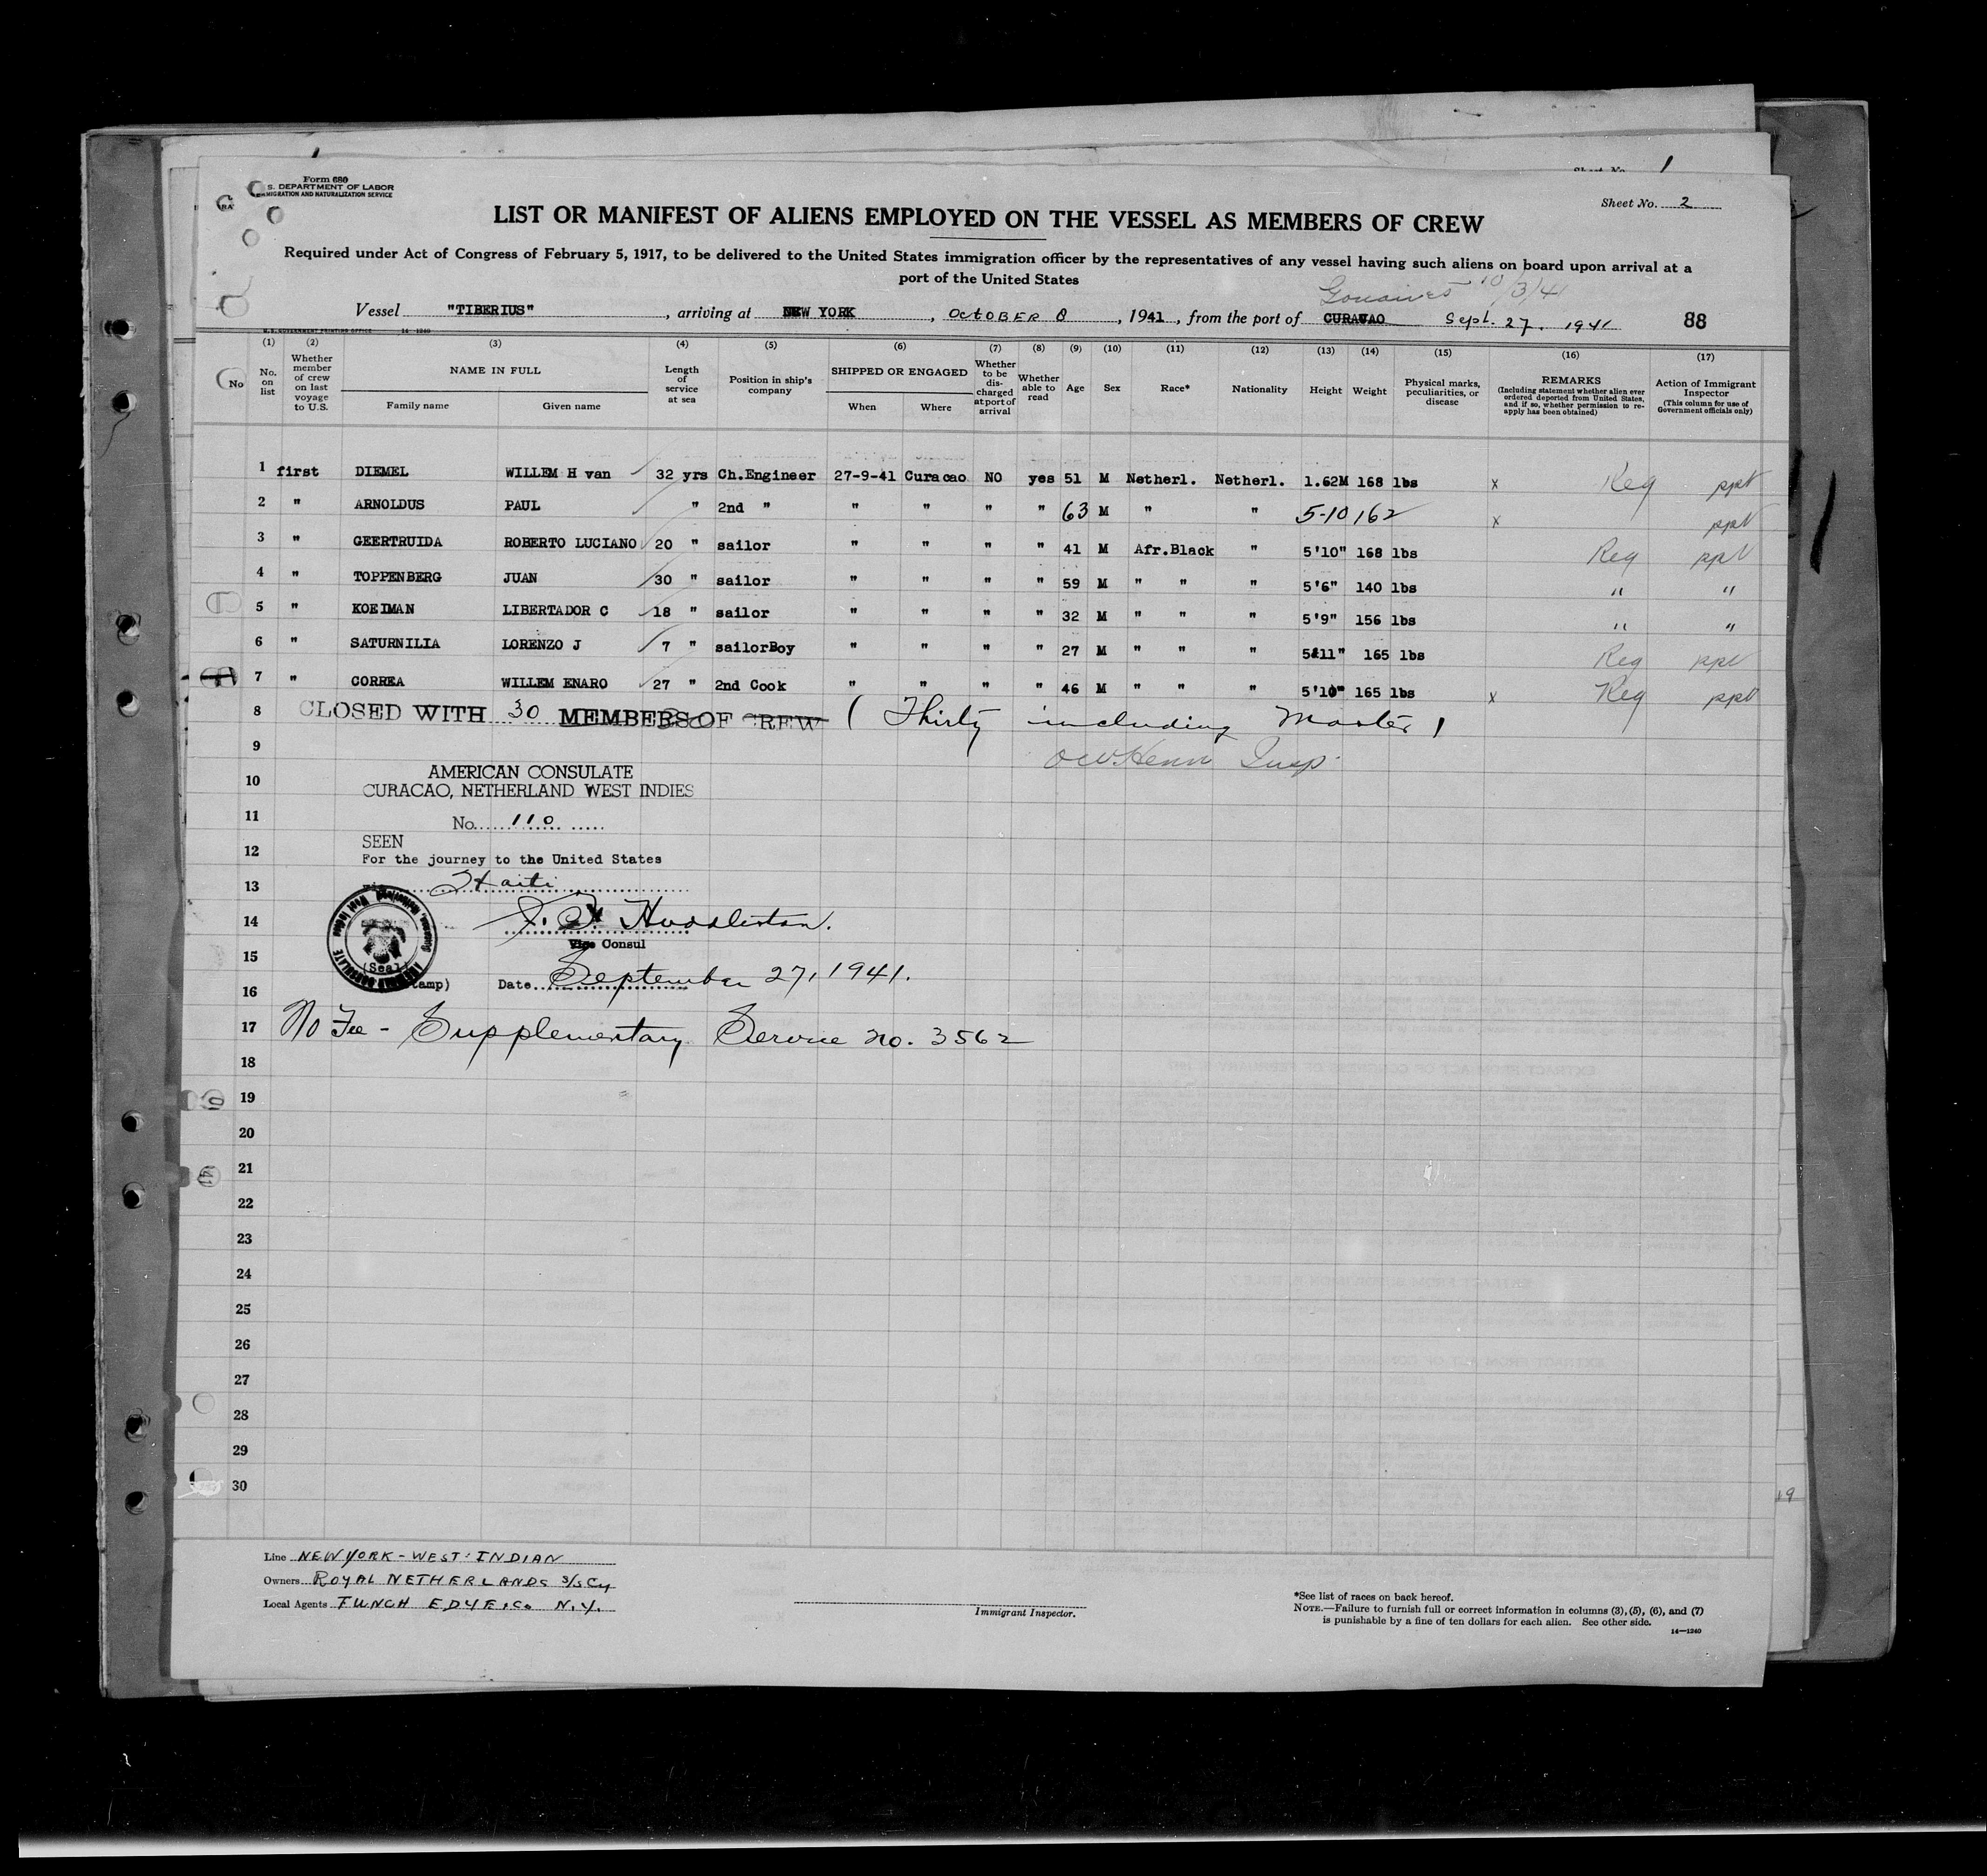 Sheet No. 1
Form 680
S. DEPARTMENT OF LABOR
IMMIGRATION AND NATURALIZATION SERVICE
Sheet No. 2
LIST OR MANIFEST OF ALIENS EMPLOYED ON THE VESSEL AS MEMBERS OF CREW
Required under Act of Congress of February 5, 1917, to be delivered to the United States immigration officer by the representatives of any vessel having such aliens on board upon arrival at a
port of the United States
Gonaives 10/3/41
Vessel "TIBERIUS", arriving at NEW YORK, OCTOBER 8, 1941, from the port of CURACAO Sept. 27. 1941 88
U.S. GOVERNMENT PRINTING OFFICE 14-1240
(1) (2) (3) (4) (5) (6) (7) (8) (9) (10) (11) (12) (13) (14) (15) (16) (17)
No
No. on list
Whether member of crew on last voyage to U.S.
NAME IN FULL
Family name Given name
Length of service at sea
Position in ship's company
SHIPPED OR ENGAGED
When Where
Whether to be discharged at port of arrival
Whether able to read
Age
Sex
Race*
Nationality
Height
Weight
Physical marks, peculiarities, or disease
REMARKS
(Including statement whether alien ever ordered deported from United States, and if so, whether permission to reapply has been obtained)
Action of Immigrant Inspector
(This column for use of Government officials only)
1 first DIEMEL WILLEM H van 32 yrs Ch.Engineer 27-9-41 Curacao NO yes 51 M Netherl. Netherl. 1.62M 168 lbs x Reg ppt
2 " ARNOLDUS PAUL " 2nd " " " " " 63 M " " 5-10 162 x ppt
3 " GEERTRUIDA ROBERTO LUCIANO 20 " sailor " " " " 41 M Afr.Black " 5'10" 168 lbs Reg ppt
4 " TOPPENBERG JUAN 30 " sailor " " " " 59 M " " " 5'6" 140 lbs " "
5 " KOEIMAN LIBERTADOR C 18 " sailor " " " " 32 M " " " 5'9" 156 lbs " "
6 " SATURNILIA LORENZO J 7 " sailorBoy " " " " 27 M " " " 5'11" 165 lbs Reg ppt
7 " CORREA WILLEM ENARO 27 " 2nd Cook " " " " 46 M " " " 5'10" 165 lbs x Reg ppt
8 CLOSED WITH 30 MEMBERS OF CREW ( Thirty including Master )
9 Insp.
10 AMERICAN CONSULATE
CURACAO, NETHERLAND WEST INDIES
11 No. 110
12 SEEN
For the journey to the United States
13 Haiti
14 Huddleston.
Vice Consul
15 (Seal)
16 Date September 27, 1941.
17 No Fee - Supplementary Service no. 3562
18
19
20
21
22
23
24
25
26
27
28
29
30
19
Line NEW YORK - WEST INDIAN
Owners ROYAL NETHERLANDS S/S Cy
Local Agents FUNCH EDYE & Co N.Y.
Immigrant Inspector.
*See list of races on back hereof.
NOTE.—Failure to furnish full or correct information in columns (3), (5), (6), and (7)
is punishable by a fine of ten dollars for each alien. See other side.
14—1240